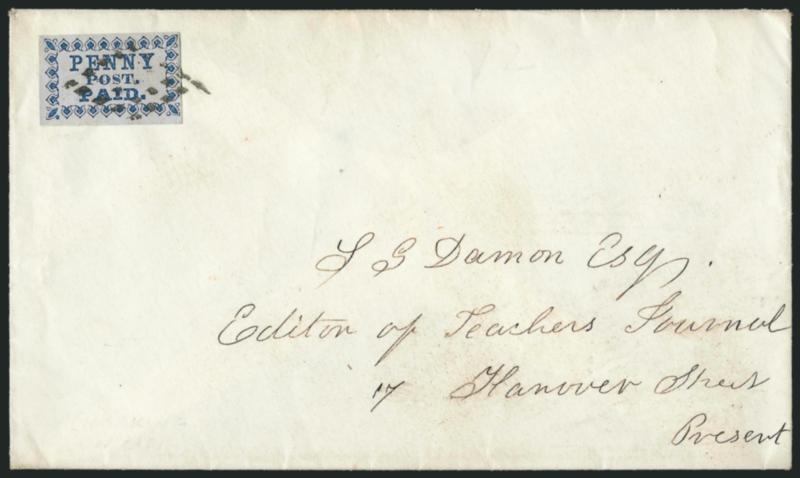 PENNY
POST.
PAID.
S G Damon Esq.
Editor of Teachers Journal
17 Hanover Street
Present